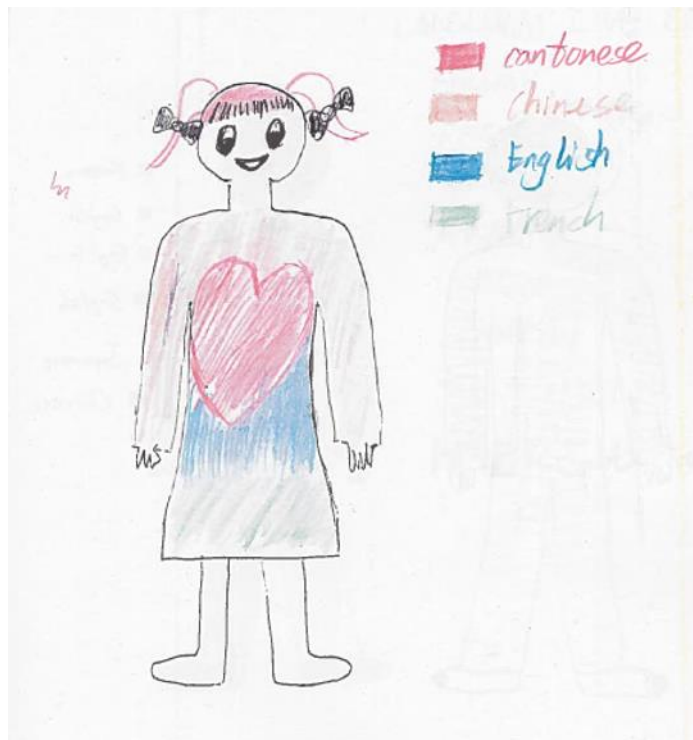 cantonese
Chinese
English
french